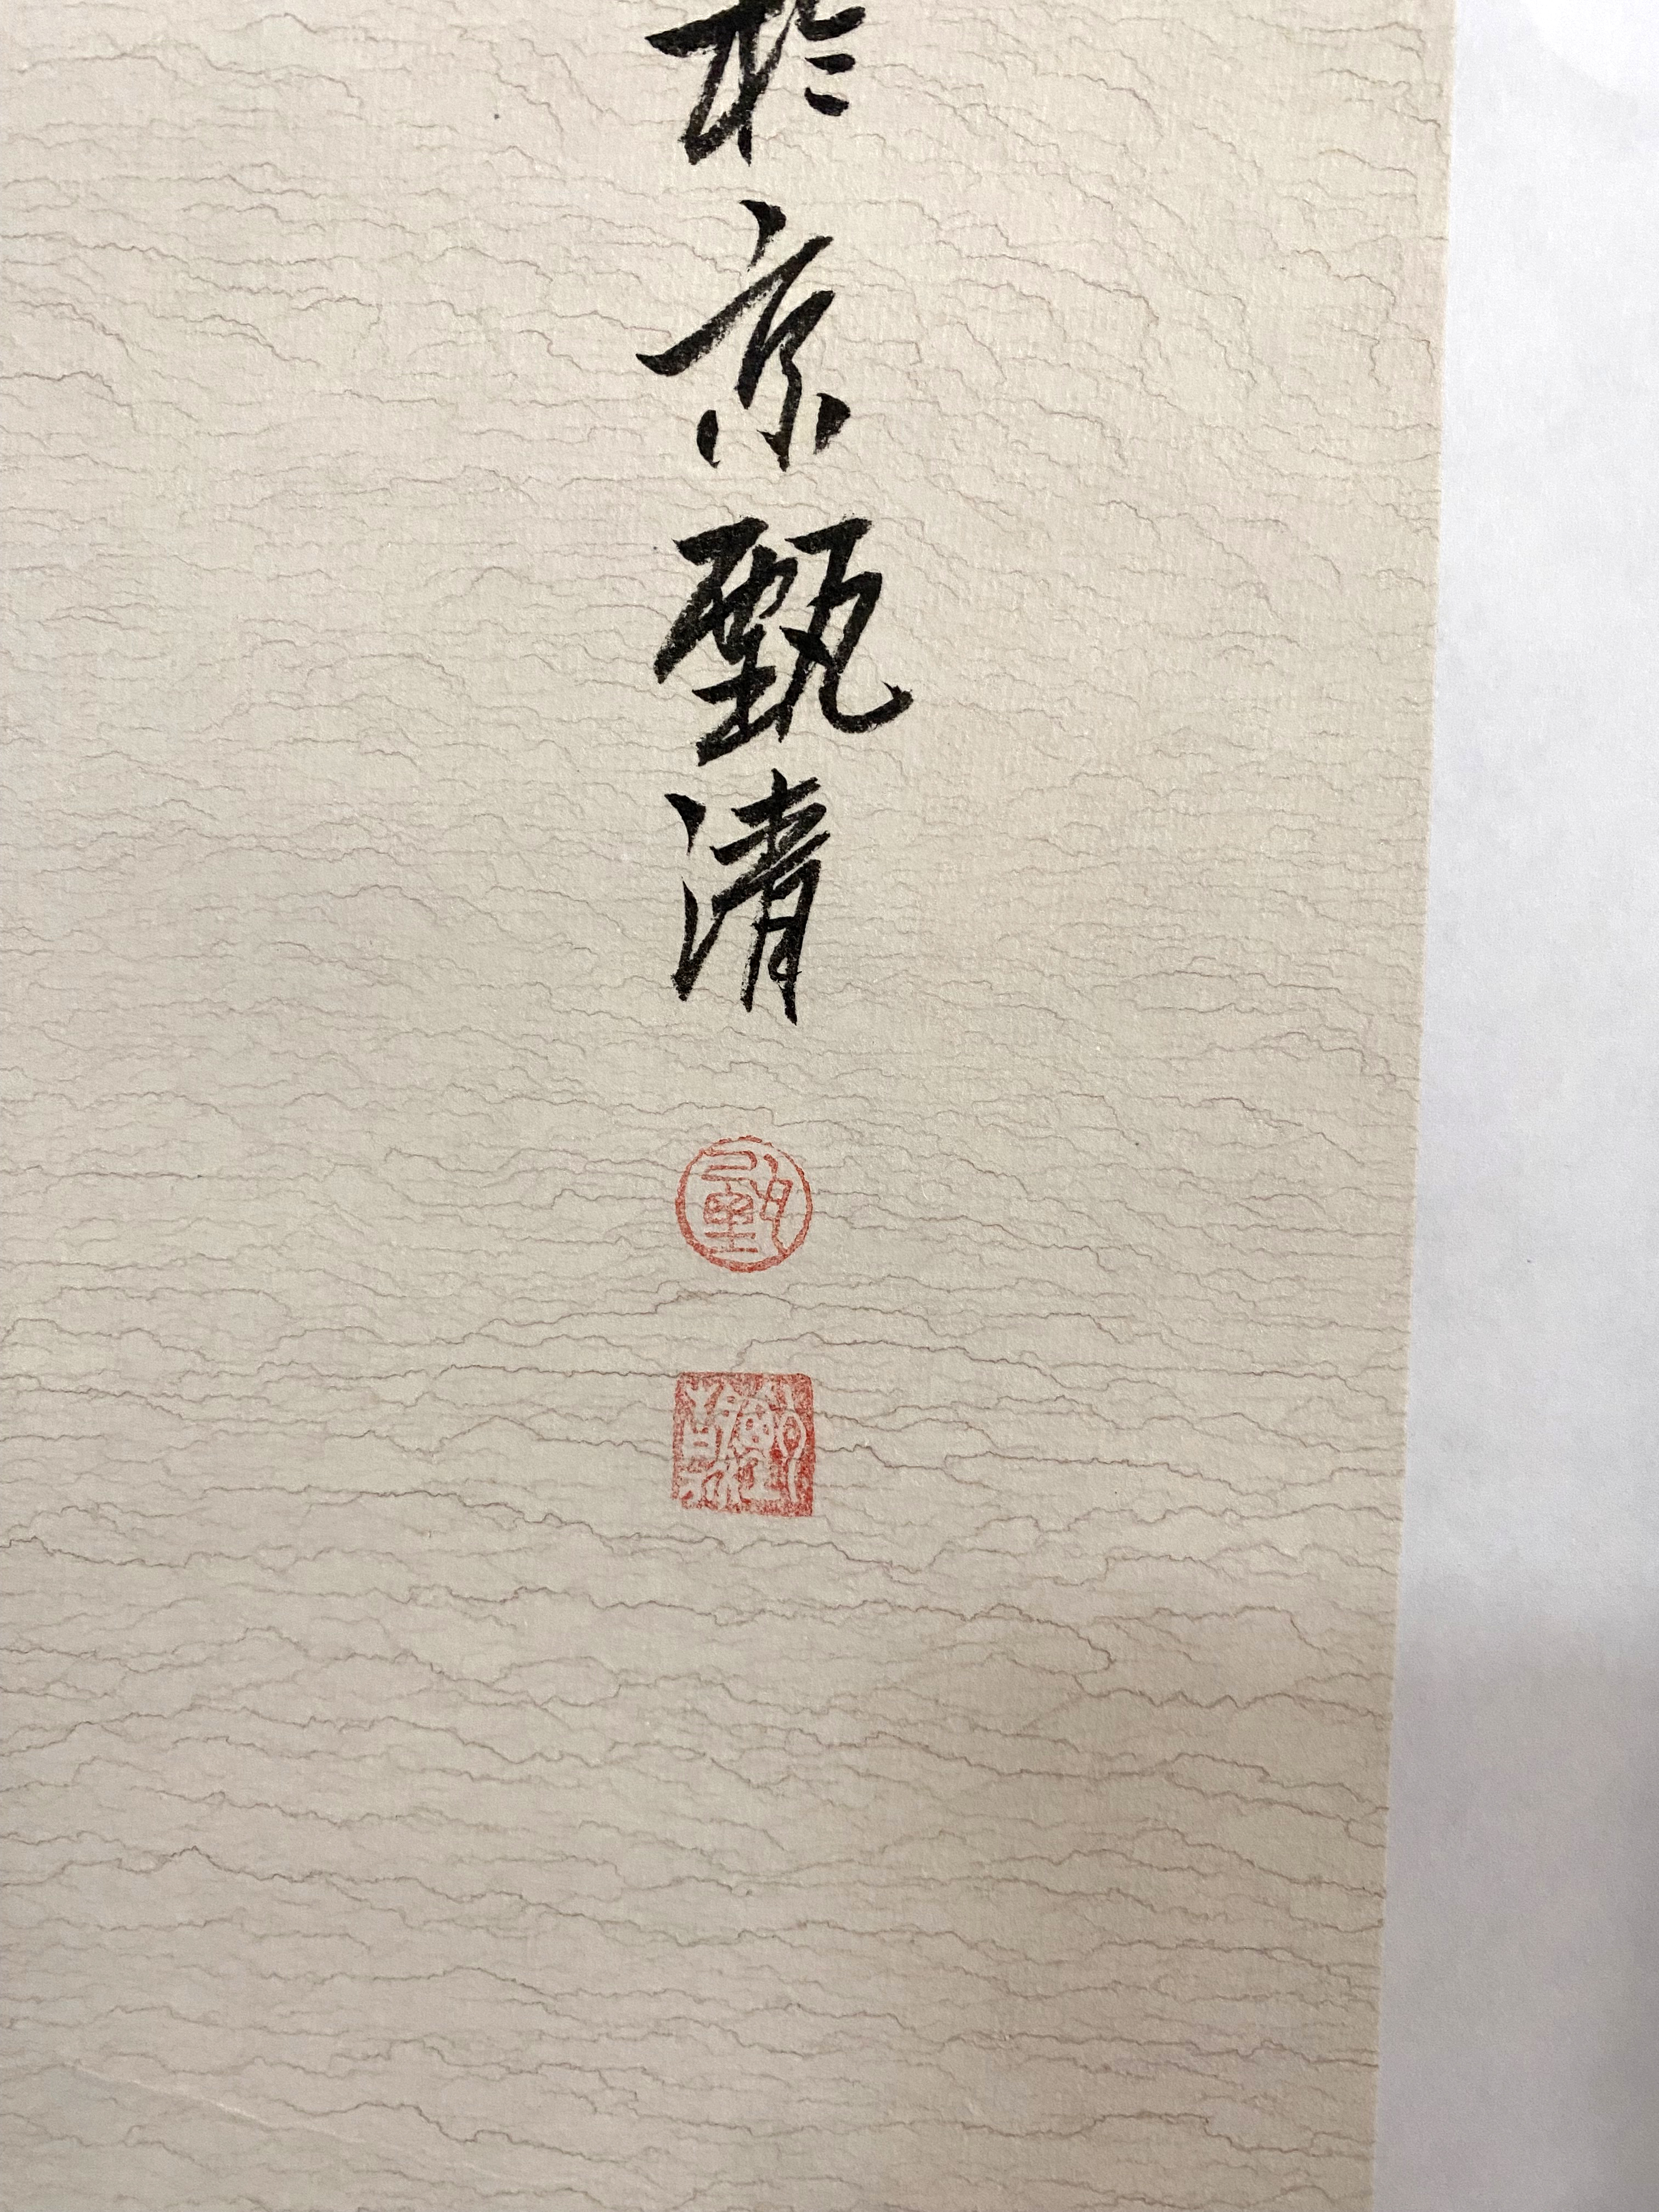 於京甄清
甄